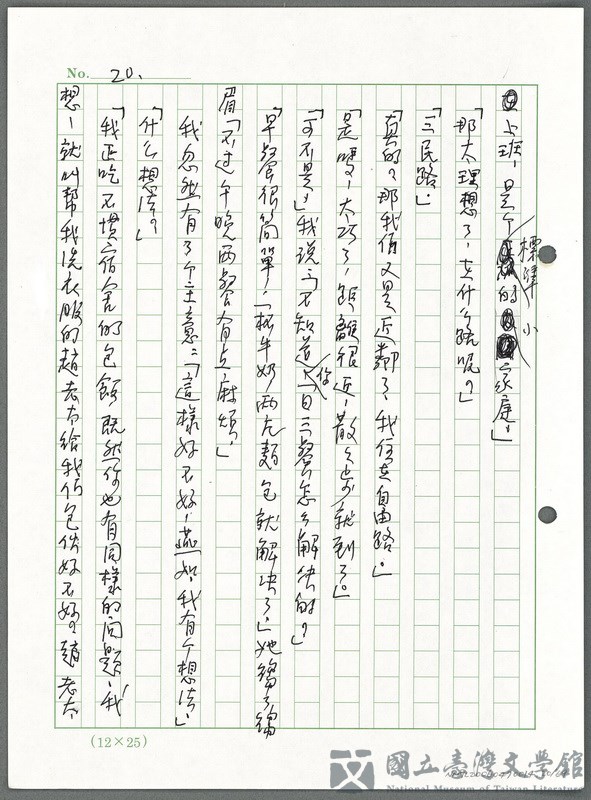 No. 20.
上班，是个標準的小家庭。」
「那太理想了，在什么路呢？」
「三民路。」
「真的？那我们又是近鄰了，我住在自由路。」
「是嗎，太巧了，距離很近，散散步就到了。」
「可不是，」我說：「不知道你一日三餐怎么解決的？」
「早餐很簡單，一杯牛奶兩片麵包就解決了，」她縐了縐
眉「不过午晚兩餐有点麻煩。」
我忽然有了个主意：「這樣好不好，燕如，我有个想法，」
「什么想法？」
「我正吃不慣宿舍的包飯，既然你也有同樣的问题，我
想，就叫幫我洗衣服的趙老太给我们包伙好不好？趙老太，
(12×25)
國立臺灣文學館
National Museum of Taiwan Literature